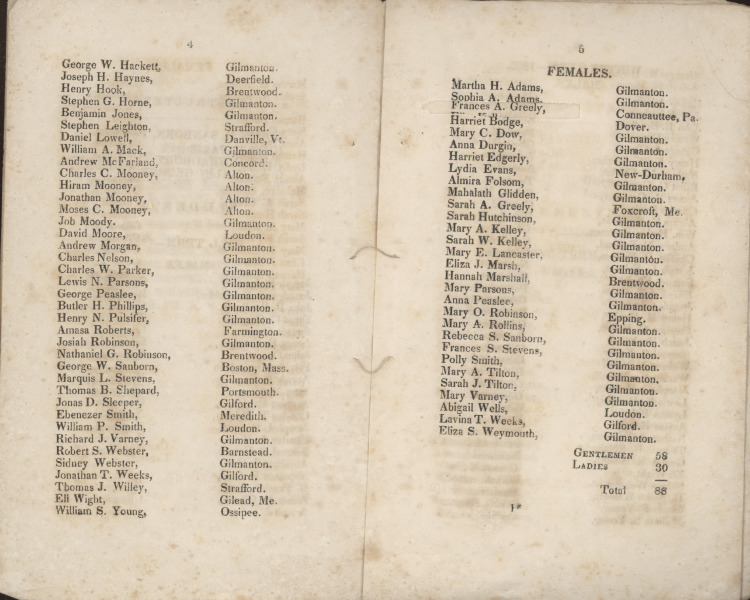 4
George W. Hackett, Gilmanton.
Joseph H. Haynes, Deerfield.
Henry Hook, Brentwood.
Stephen G. Horne, Gilmanton.
Benjamin Jones, Gilmanton.
Stephen Leighton, Strafford.
Daniel Lowell, Danville, Vt.
William A. Mack, Gilmanton.
Andrew McFarland, Concord.
Charles C. Mooney, Alton.
Hiram Mooney, Alton.
Jonathan Mooney, Alton.
Moses C. Mooney, Alton.
Job Moody. Gilmanton.
David Moore, Loudon.
Andrew Morgan, Gilmanton.
Charles Nelson, Gilmanton.
Charles W. Parker, Gilmanton.
Lewis N. Parsons, Gilmanton.
George Peaslee, Gilmanton.
Butler H. Phillips, Gilmanton.
Henry N. Pulsifer, Gilmanton.
Amasa Roberts, Farmington.
Josiah Robinson, Gilmanton.
Nathaniel G. Robinson, Brentwood.
George W. Sanborn, Boston, Mass.
Marquis L. Stevens, Gilmanton.
Thomas B. Shepard, Portsmouth.
Jonas D. Sleeper, Gilford.
Ebenezer Smith, Meredith.
William P. Smith, Loudon.
Richard J. Varney, Gilmanton.
Robert S. Webster, Barnstead.
Sidney Webster, Gilmanton.
Jonathan T. Weeks, Gilford.
Thomas J. Willey, Strafford.
Eli Wight, Gilead, Me.
William S. Young, Ossipee.
5
FEMALES.
Martha H. Adams, Gilmanton.
Sophia A. Adams. Gilmanton.
Frances A. Greely, Conneauttee, Pa.
Harriet Bodge, Dover.
Mary C. Dow, Gilmanton.
Anna Durgin, Gilmanton.
Harriet Edgerly, Gilmanton.
Lydia Evans, New-Durham,
Almira Folsom, Gilmanton.
Mahalath Glidden, Gilmanton.
Sarah A. Greely, Foxcroft, Me.
Sarah Hutchinson, Gilmanton.
Mary A. Kelley, Gilmanton.
Sarah W. Kelley, Gilmanton.
Mary E. Lancaster, Gilmanton.
Eliza J. Marsh, Gilmanton.
Hannah Marshall, Brentwood.
Mary Parsons, Gilmanton.
Anna Peaslee, Gilmanton.
Mary O. Robinson, Epping.
Mary A. Rollins, Gilmanton.
Rebecca S. Sanborn, Gilmanton.
Frances S. Stevens, Gilmanton.
Polly Smith, Gilmanton.
Mary A. Tilton, Gilmanton.
Sarah J. Tilton, Gilmanton.
Mary Varney, Gilmanton.
Abigail Wells, Loudon.
Lavina T. Weeks, Gilford.
Eliza S. Weymouth, Gilmanton.
GENTLEMEN 58
LADIES 30
Total 88
1*